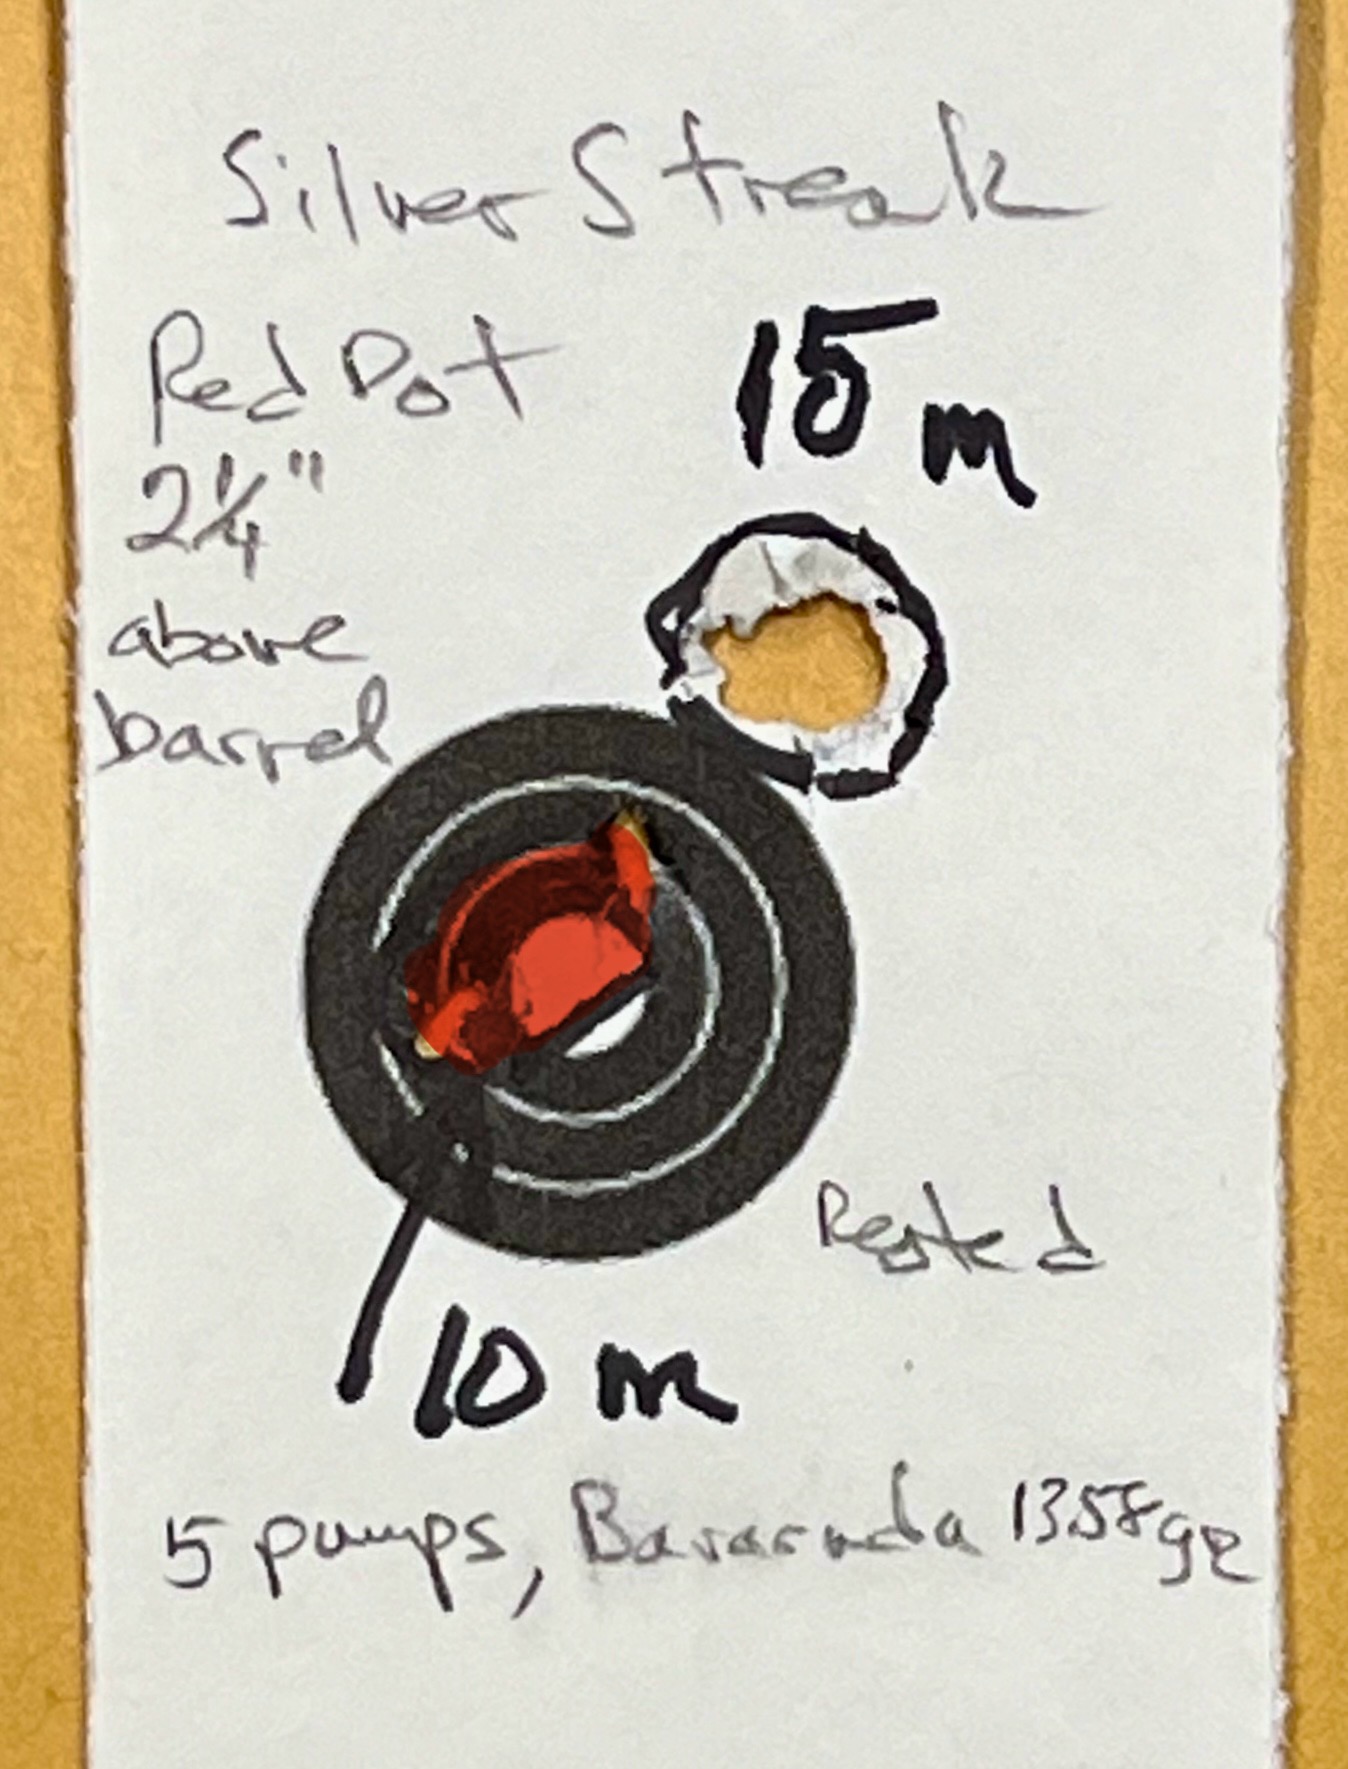 Silver Streak
Red Dot
2 1/4"
above
barrel
15 m
Rested
10 m
5 pumps, Baracuda 13.58 gr